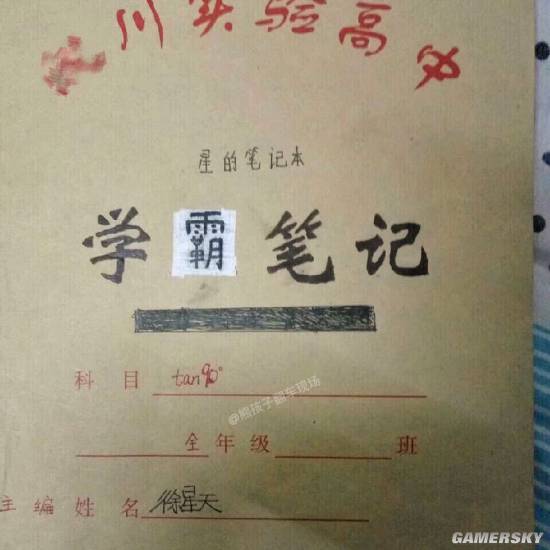 川实验高中
星的笔记本
学霸笔记
科目 tan90°
@熊孩子翻车现场
全年级 班
主编姓名 徐星天
GAMERSKY